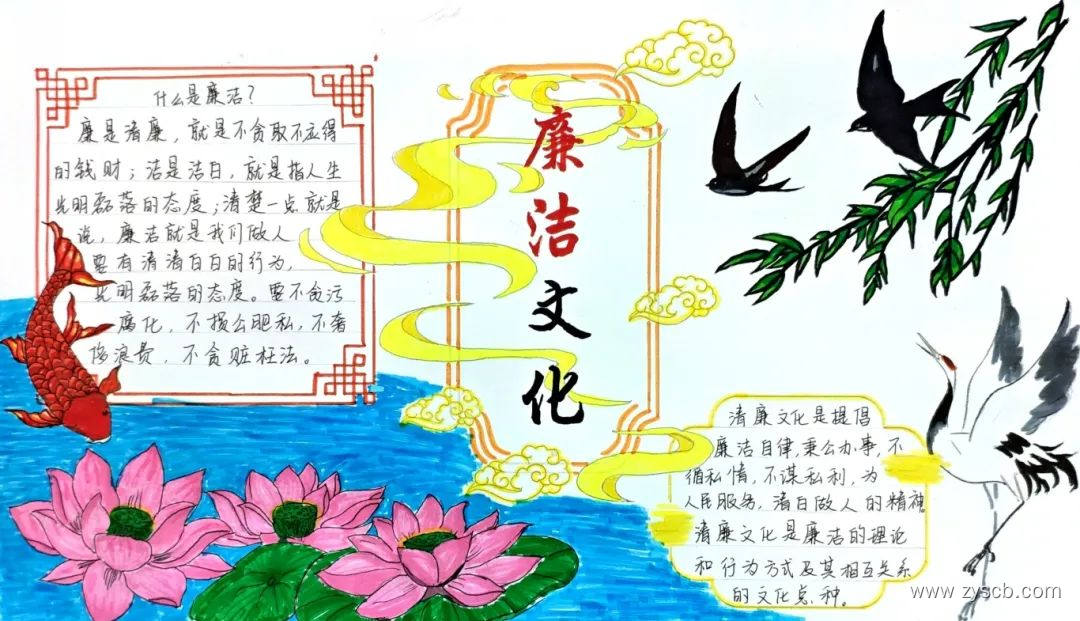 什么是廉洁？
廉是清廉，就是不贪取不应得
的钱财；洁是洁白，就是指人生
光明磊落的态度；清楚一点就是
说，廉洁就是我们做人
要有清清白白的行为，
光明磊落的态度。要不贪污
腐化，不损公肥私，不奢
侈浪费，不贪赃枉法。
廉洁文化
清廉文化是提倡
廉洁自律，秉公办事，不
循私情，不谋私利，为
人民服务，清白做人的精神
清廉文化是廉洁的理论
和行为方式及其相互关系
的文化总种。
www.zyscb.com